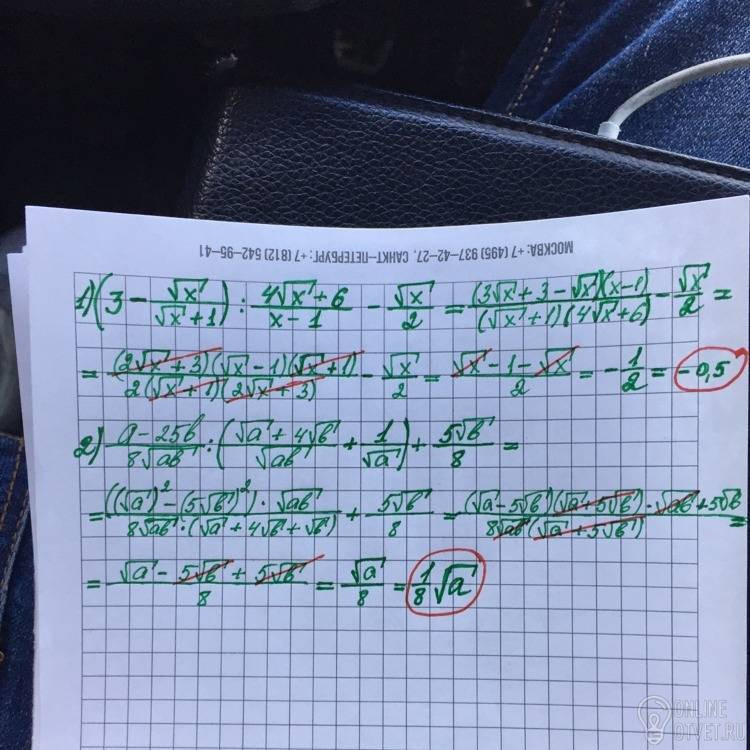 МОСКВА: +7 (495) 937-42-27, САНКТ-ПЕТЕРБУРГ: +7 (812) 542-95-41
1) (3 - √x / (√x + 1)) : (4√x + 6) / (x - 1) - √x / 2 = (3√x + 3 - √x)(x - 1) / ((√x + 1)(4√x + 6)) - √x / 2 =
= (2√x + 3)(√x - 1)(√x + 1) / (2(√x + 1)(2√x + 3)) - √x / 2 = (√x - 1 - √x) / 2 = - 1/2 = -0,5
2) (a - 25b) / (8√ab) : ((√a + 4√b) / √ab + 1/√a) + 5√b / 8 =
= ((√a)² - (5√b)²) · √ab / (8√ab · (√a + 4√b + √b)) + 5√b / 8 = (√a - 5√b)(√a + 5√b) · √ab + 5√b / (8√ab (√a + 5√b)) =
= (√a - 5√b + 5√b) / 8 = √a / 8 = 1/8 √a
ONLINE
OTVET.RU